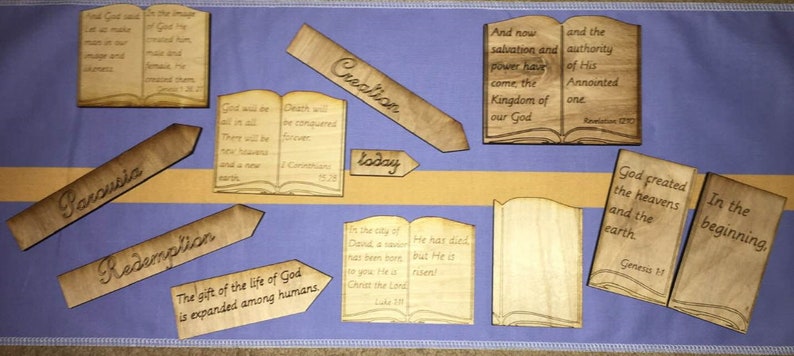 And God said,
Let us make
man in our
image and
likeness.
In the image
of God He
created him,
male and
female, He
created them.
Genesis 1:26,27
Creation
And now
salvation and
power have
come, the
Kingdom of
our God
and the
authority
of His
Annointed
one.
Revelation 12:10
God will be
all in all.
There will be
new heavens
and a new
earth.
Death will
be conquered
forever.
1 Corinthians
15:28
today
Parousia
Redemption
The gift of the life of God
is expanded among humans.
In the city of
David, a savior
has been born
to you; He is
Christ the Lord.
Luke 2:11
He has died,
but He is
risen!
God created
the heavens
and the
earth.
Genesis 1:1
In the
beginning,